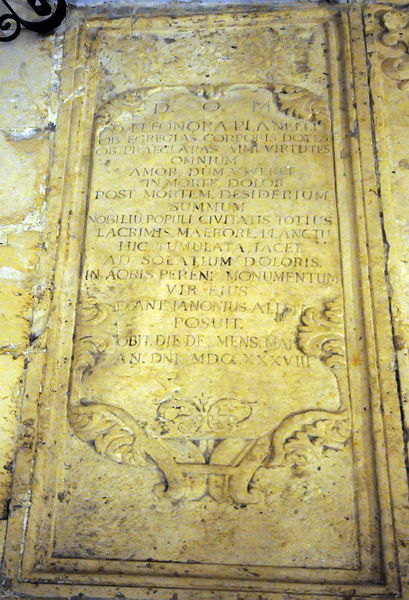 D. O. M.
D. ELEONORA PLANELLI
OB EGREGIAS CORPORIS DOTES
OB PRAECLARAS VIRTUTES
OMNIUM
AMOR DUM VIVERET
IN MORTE DOLOR
POST MORTEM DESIDERIUM
SUMMUM
NOBILIU POPULI CIVITATIS TOTIUS
LACRIMIS, MAERORE, PLANCTU
HIC TUMULATA JACET
AD SOLATIUM DOLORIS
IN AMORIS PERENE MONUMENTUM
VIR EJUS
D. ANT. JANONIUS
POSUIT.
OBIIT DIE MENS. MAI
AN. DNI MDCCXXXVIII